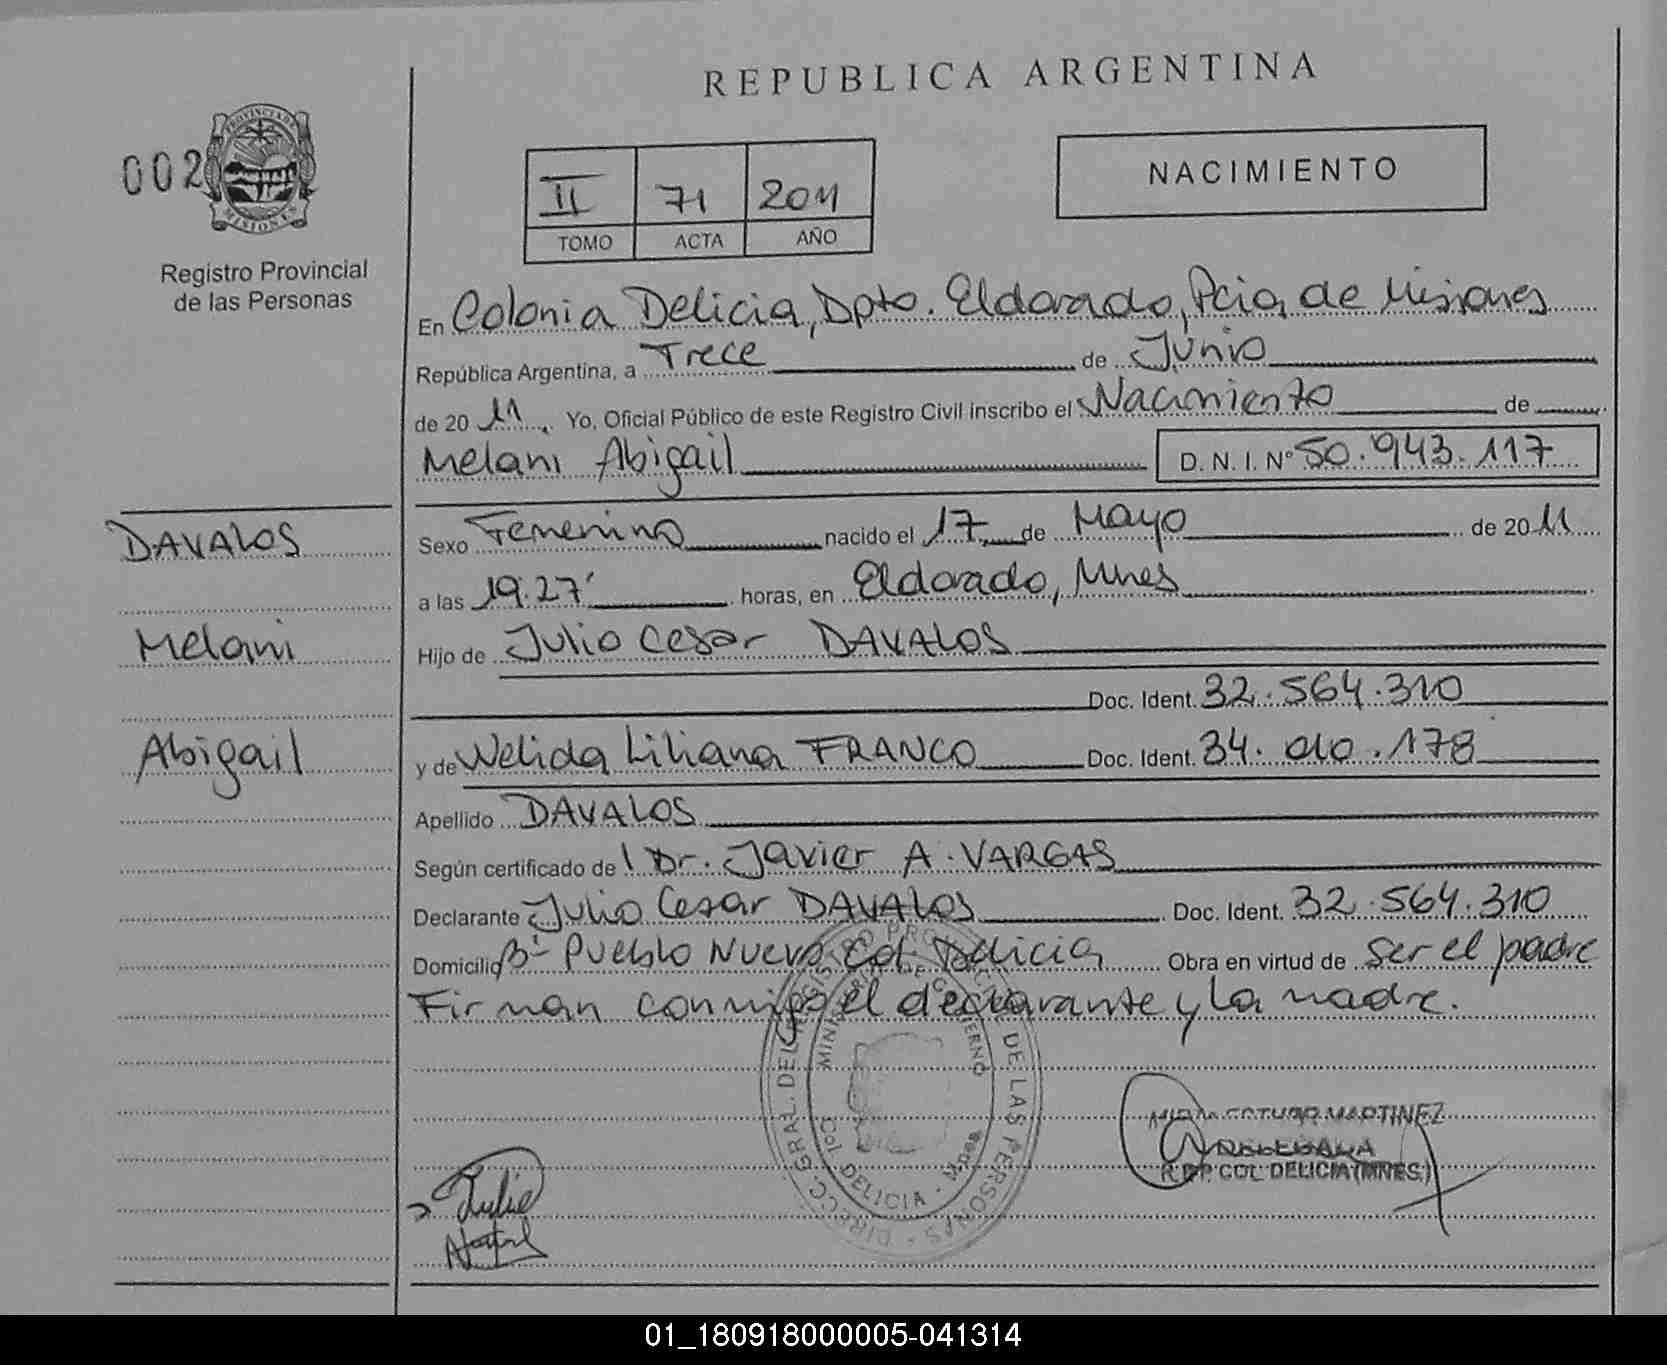 REPUBLICA ARGENTINA
002
PROVINCIA DE
MISIONES
Registro Provincial
de las Personas
II 71 2011
TOMO ACTA AÑO
NACIMIENTO
En Colonia Delicia, Dpto. Eldorado, Pcia, de Misiones
República Argentina, a Trece de Junio
de 20 11 Yo, Oficial Público de este Registro Civil inscribo el Nacimiento de
Melani Abigail D. N. I. N° 50.943.117
DAVALOS
Melani
Abigail
Sexo Femenino nacido el 17 de Mayo de 20 11
a las 19.27' horas, en Eldorado, Mnes
Hijo de Julio Cesar DAVALOS
Doc. Ident. 32.564.310
y de Welida Liliana FRANCO Doc. Ident. 34.010.178
Apellido DAVALOS
Según certificado de l Dr. Javier A. VARGAS
Declarante Julio Cesar DAVALOS Doc. Ident. 32.564.310
Domicilio B- Pueblo Nuevo Col. Delicia Obra en virtud de ser el padre
Firman conmigo el declarante y la madre.
DIRECC. GRAL. DEL REGISTRO PROVINCIAL DE LAS PERSONAS
MINISTERIO DE GOBIERNO
Col. DELICIA - Mnes
MARTINEZ
DELEGADA
R.P.P. COL. DELICIA (MNES.)
Julio
01_180918000005-041314